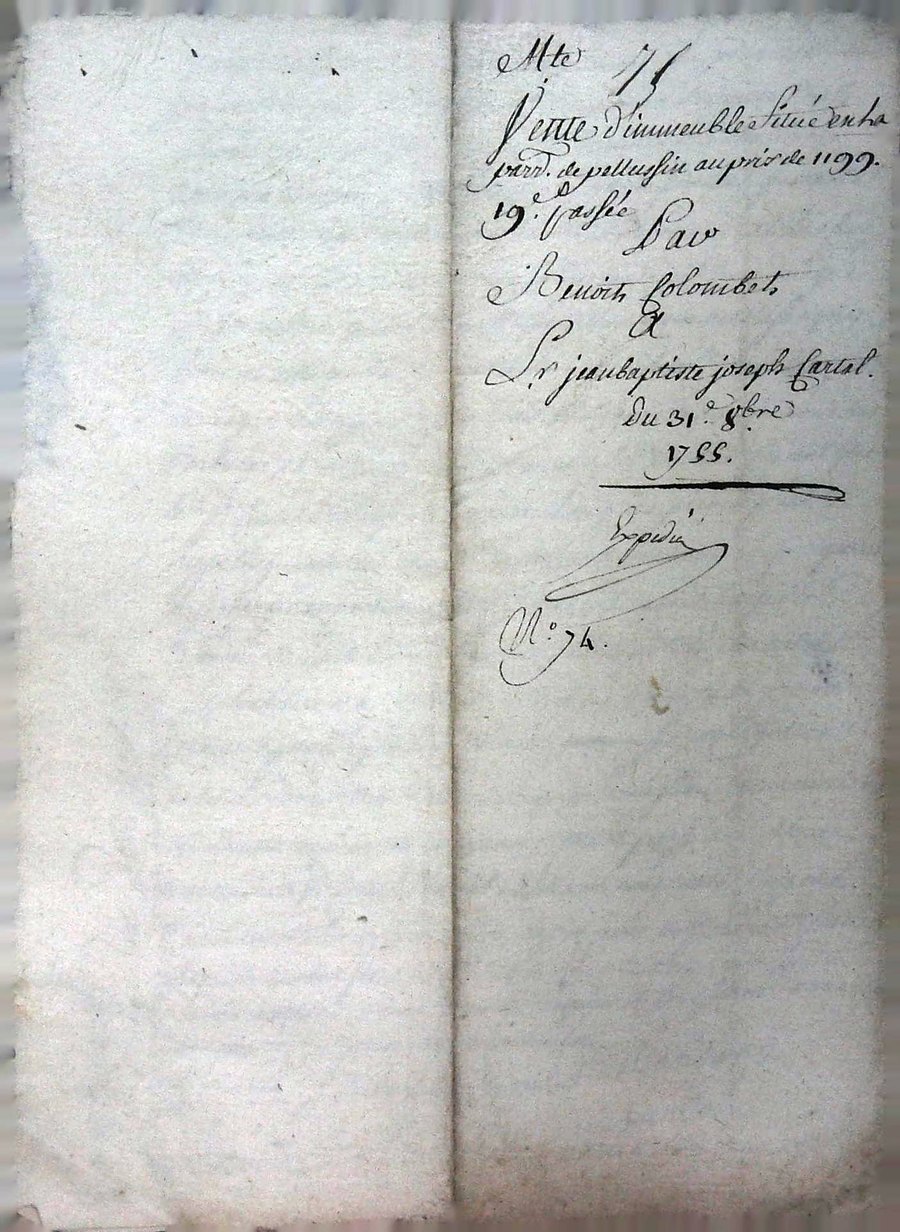 Mte 75
Vente d'immeuble Situé en la
parr. de pellussin au prix de 1199.
19.e passée
Par
Benoit Colombet
A
Sr. jean baptiste joseph Cartal.
Du 31.e 8.bre
1755.
Expédié
No. 74.